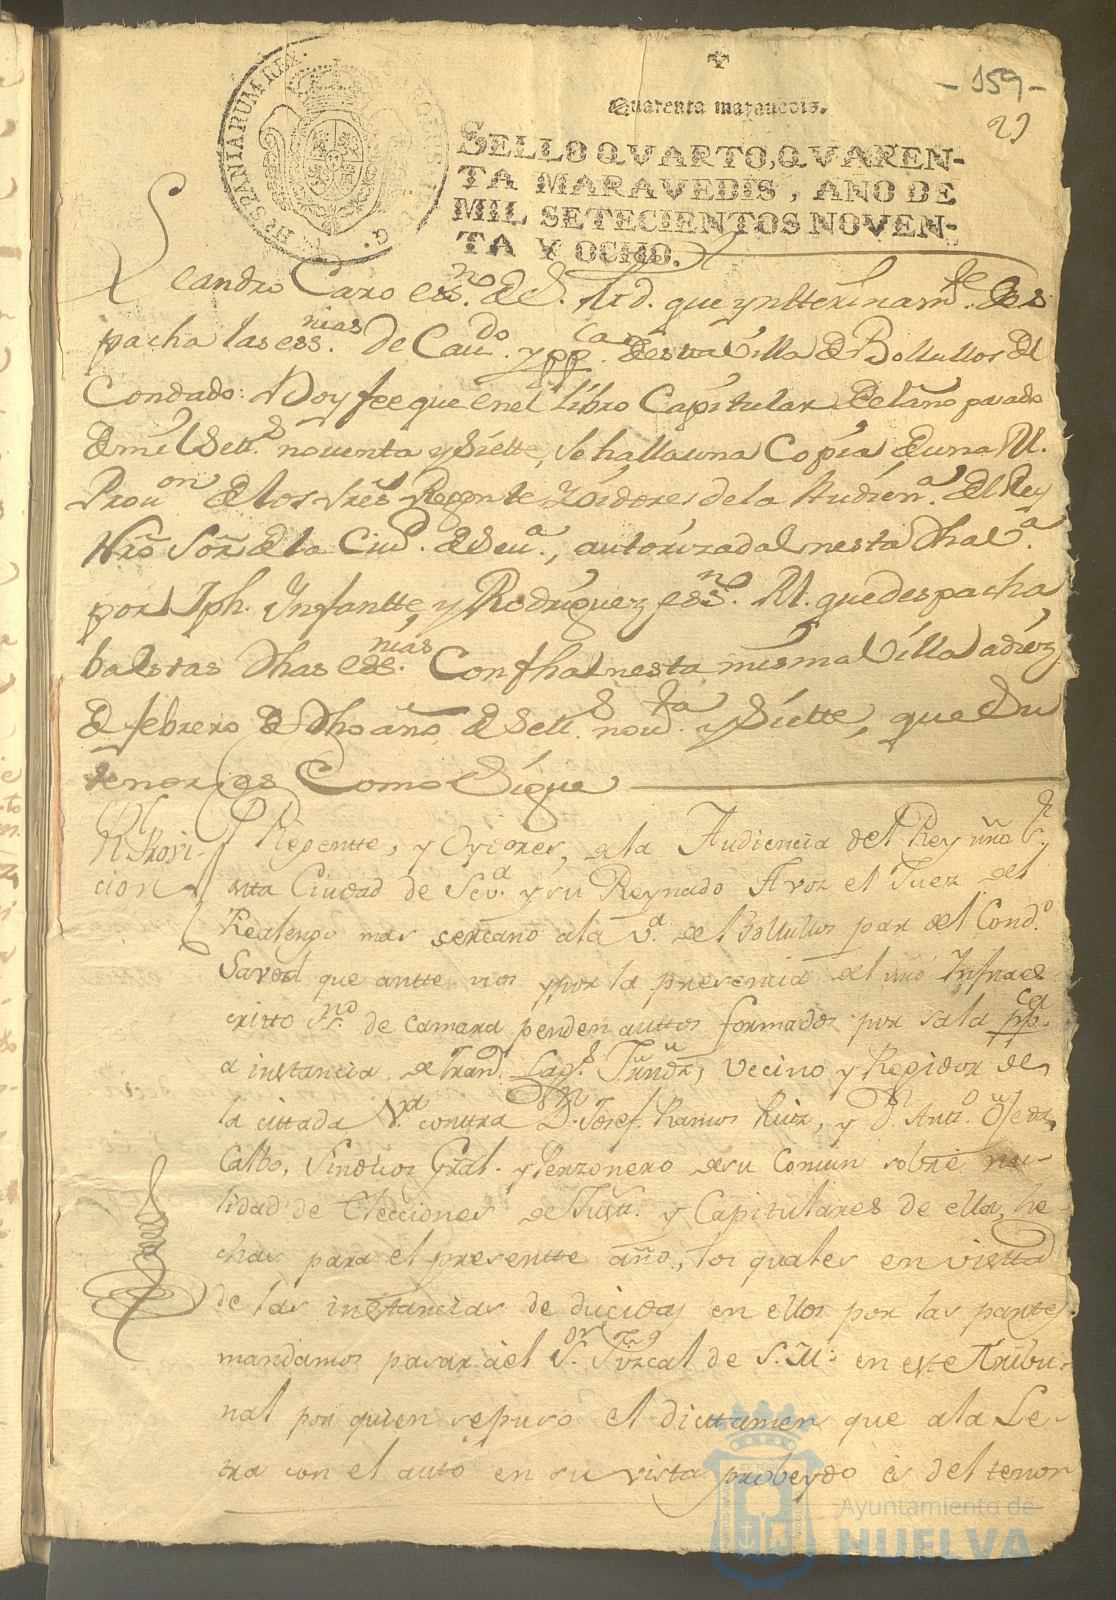 -159-
29
HISPANIARUM REX
Quarenta maravedis.
SELLO QVARTO, QVAREN-
TA MARAVEDIS, AÑO DE
MIL SETECIENTOS NOVEN-
TA Y OCHO.
Leandro Caro essno. de S. Md. que ynterinamte. des
pacha las essnias. de Cavdo. y ppca. de esta Villa de Bollullos del
Condado: Doy fee que en el Libro Capitular del año pasado
de mil Sets. noventa y Siette, se halla una Copia de una Rl.
Provon. de los Sres. Regente y Oidores de la Audiena. del Rey
Nro. Sor. de la Ciud. de Seva., autorizada al
por Jph. Infantte y Rodriguez essno. Rl. que despacha
ba estas dhas essnias. Con fha en esta misma Villa a diez
de febrero de dho año de Sets. novta. y Siette, que Su
tenor es Como Sigue
Rl. Provi-
cion
Regentte, y Oydores, de la Audiencia del Rey nño Sr.
en esta Ciudad de Seva. y su Reynado A vos el Juez del
Realengo mas sercano a la Va. de Bollullos par del Condo.
Saved que antte nos y por la presencia del nño Infraes
critto Ssno. de camara penden auttos formados por sala ppca.
a instancia de Fran. Laps. , Vecino y Regidor de
la cittada Va. contra Dn. Josef Ramos Ruiz, y Dn. Anto. Ojeda
Calbo, Sindicos Gral. y Perzonero de su Comun sobre nu-
lidad de Elecciones de Justt. y Capitulares de ella he-
chas para el presentte año, los quales en vista
de las instancias deducidas en ellos por las partes
mandamos pasar a el Sr. Fiscal de S. M. en este Tribu-
nal por quien se puso el dictamen que a la Le-
tra con el auto en su vista probeydo es del tenor
Ayuntamiento de
HUELVA